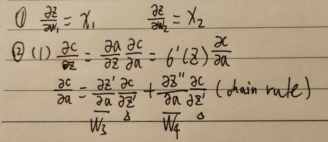 ① ∂z/∂w₁ = x₁   ∂z/∂w₂ = x₂
② (1) ∂c/∂z = ∂a/∂z ∂c/∂a = 6'(z) ∂c/∂a
∂c/∂a = ∂z'/∂a ∂c/∂z' + ∂z''/∂a ∂c/∂z' (chain rule)
w₃ w₄